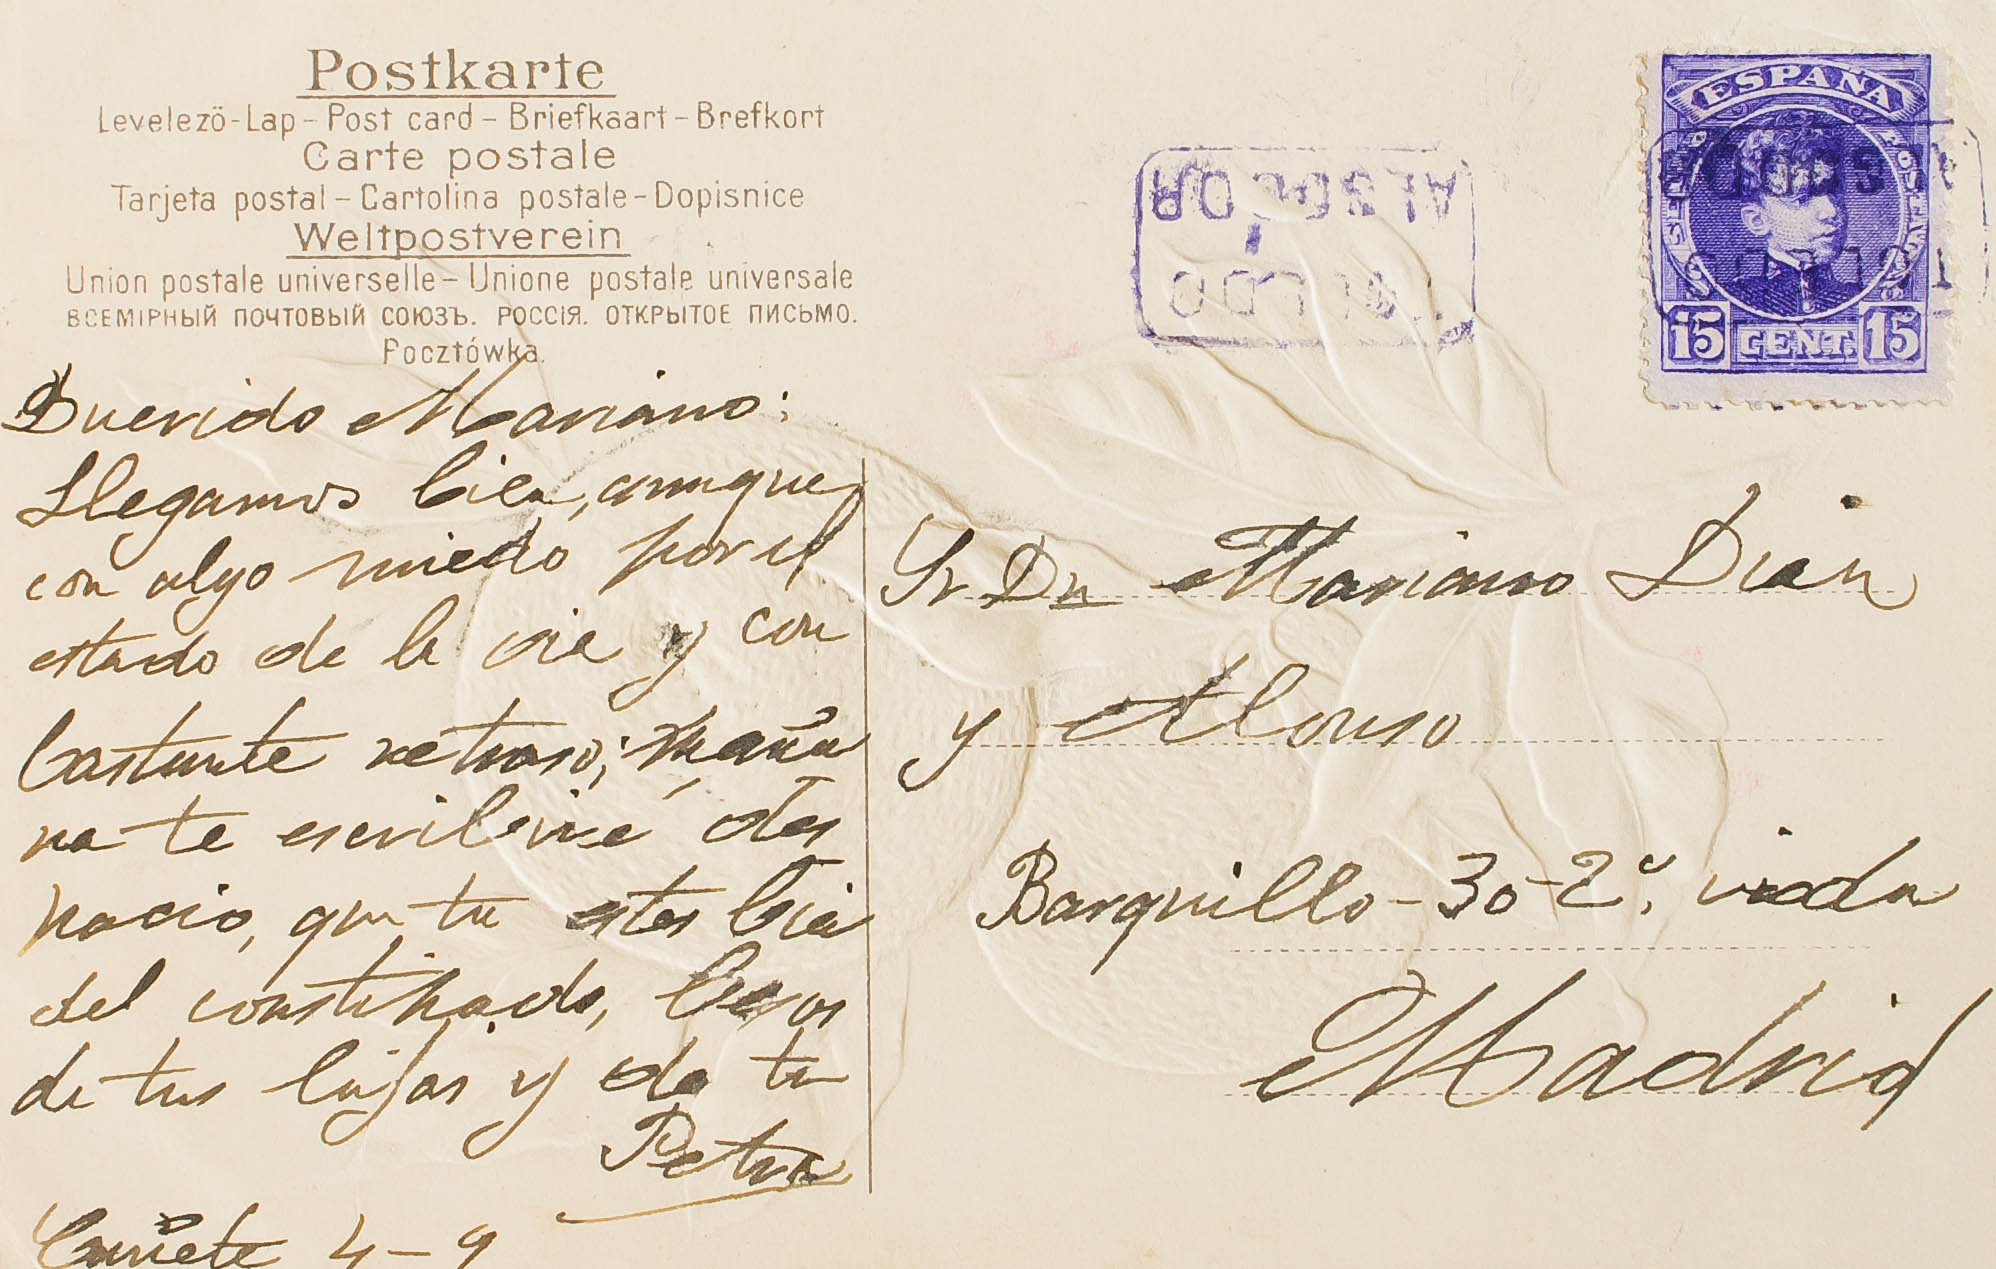 Postkarte
Levelezö-Lap – Post card – Briefkaart – Brefkort
Carte postale
Tarjeta postal – Cartolina postale – Dopisnice
Weltpostverein
Union postale universelle – Unione postale universale
ВСЕМІРНЫЙ ПОЧТОВЫЙ СОЮЗЪ. РОССІЯ. ОТКРЫТОЕ ПИСЬМО.
Pocztówka.
Querido Mariano:
Llegamos bien, aunque
con algo miedo por el
estado de la via y con
bastante retraso; maña
na te escribiré des
pacio, que tu estes bien
del constipado, besos
de tus hijas y de tu
Petra
Cañete 4-9
ESPAÑA
15 CENT. 15
Sr Dn Mariano Dian
y Alonso
Barquillo - 30 - 2º,
Madrid